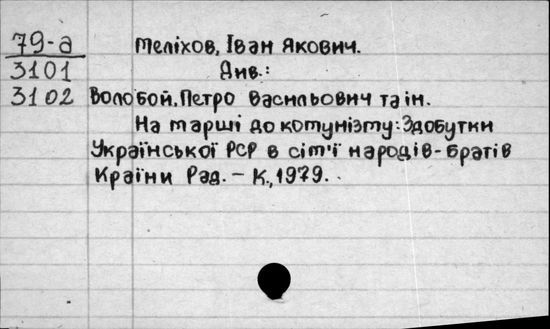 79-а Меліхов, Іван Якович.
3101 Див.:
3102 Волобой, Петро Васильович та ін.
На марші до комунізму: Здобутки
Української РСР в сім'ї народів-братів
Країни Рад. – К., 1979.